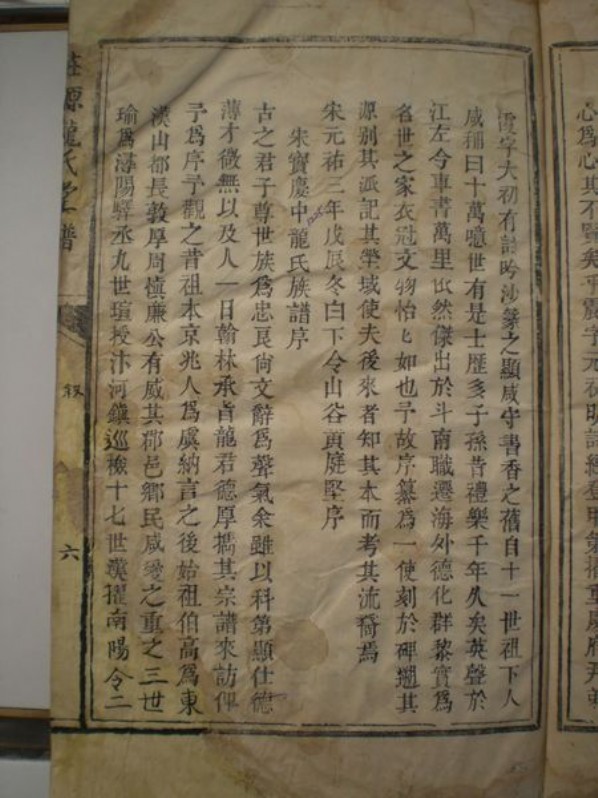 心爲心其不賢矣乎震字元
霞字大初有詩吟沙篆之顯咸守書香之舊自十一世祖下人
咸稱曰十萬噫世有是士歷多子孫昔禮樂千年久矣英聲於
江左今車書萬里依然傑出於斗南職遷海外德化群黎實爲
名世之家衣冠文物怡乜如也予故序纂爲一使刻於碑 其
源别其派記其塋域使夫後來者知其本而考其流裔焉
宋元祐三年戊辰冬白下令山谷黄庭堅序
宋寶慶中龍氏族譜序
古之君子尊世族爲忠良尙文辭爲聲氣余雖以科第顯仕德
薄才微無以及人一日翰林承旨龍君德厚擕其宗譜來訪俾
予爲序予觀之昔祖本京兆人爲虞納言之後始祖伯高爲東
漢山都長敦厚周慎廉公有威其郡邑鄉民咸愛之重之三世
瑜爲潯陽驛丞九世瑄授汴河鎮巡檢十七世漢擢南陽令二
源龍氏 譜
叙
六